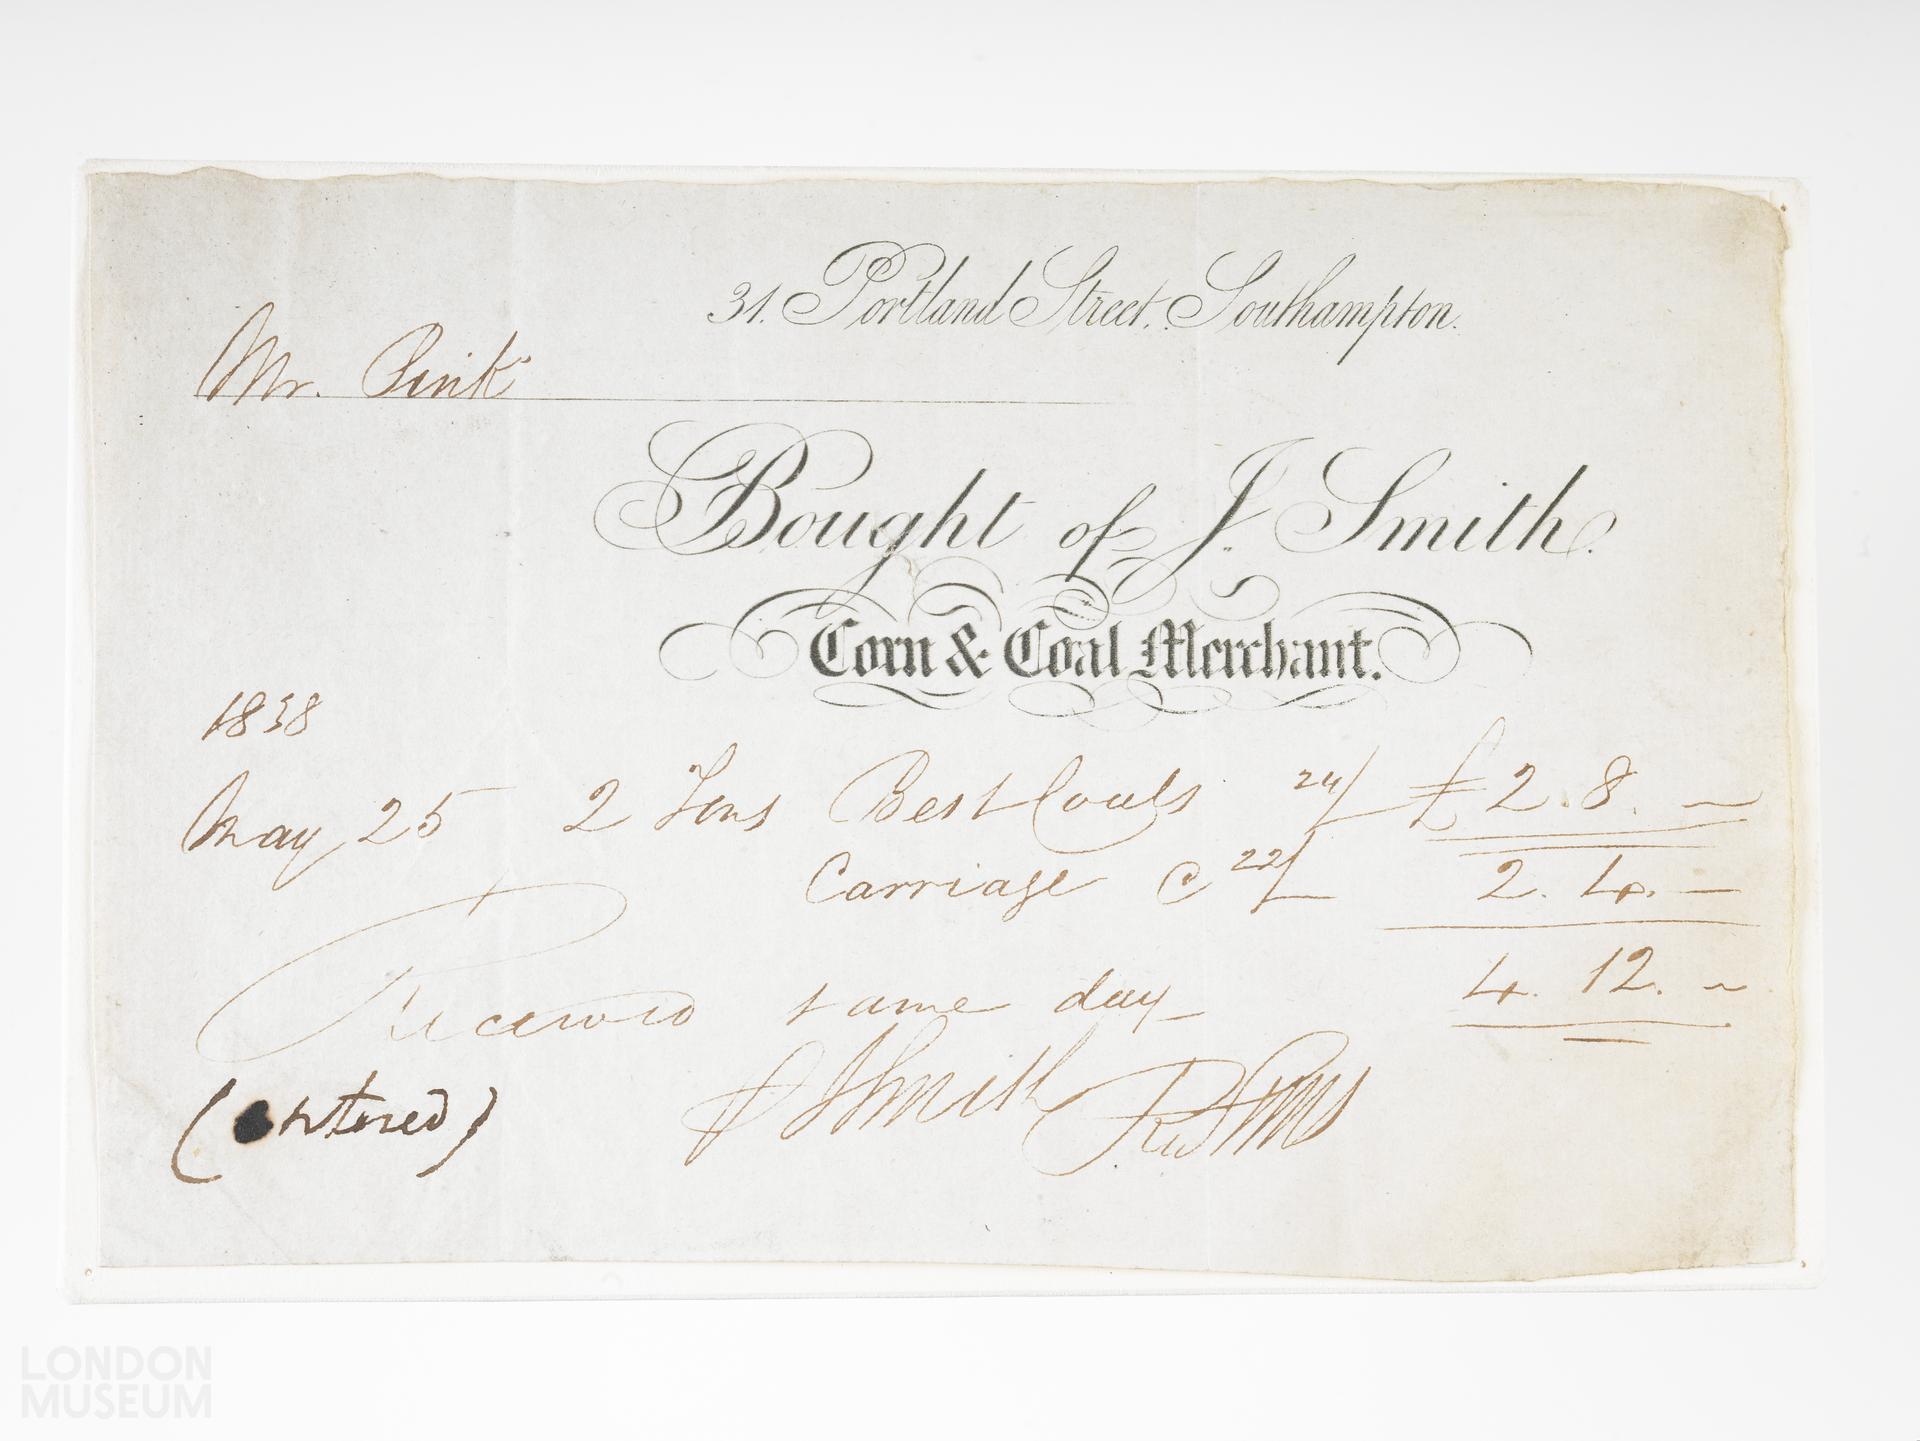 31. Portland Street, Southampton.
Mr. Pink
Bought of J. Smith.
Corn & Coal Merchant.
1838
May 25 2 Tons Best Coals 24/ £2.8.—
Carriage @ 22/ 2.4.—
4.12.—
Received same day
J Smith
(entered)
LONDON
MUSEUM